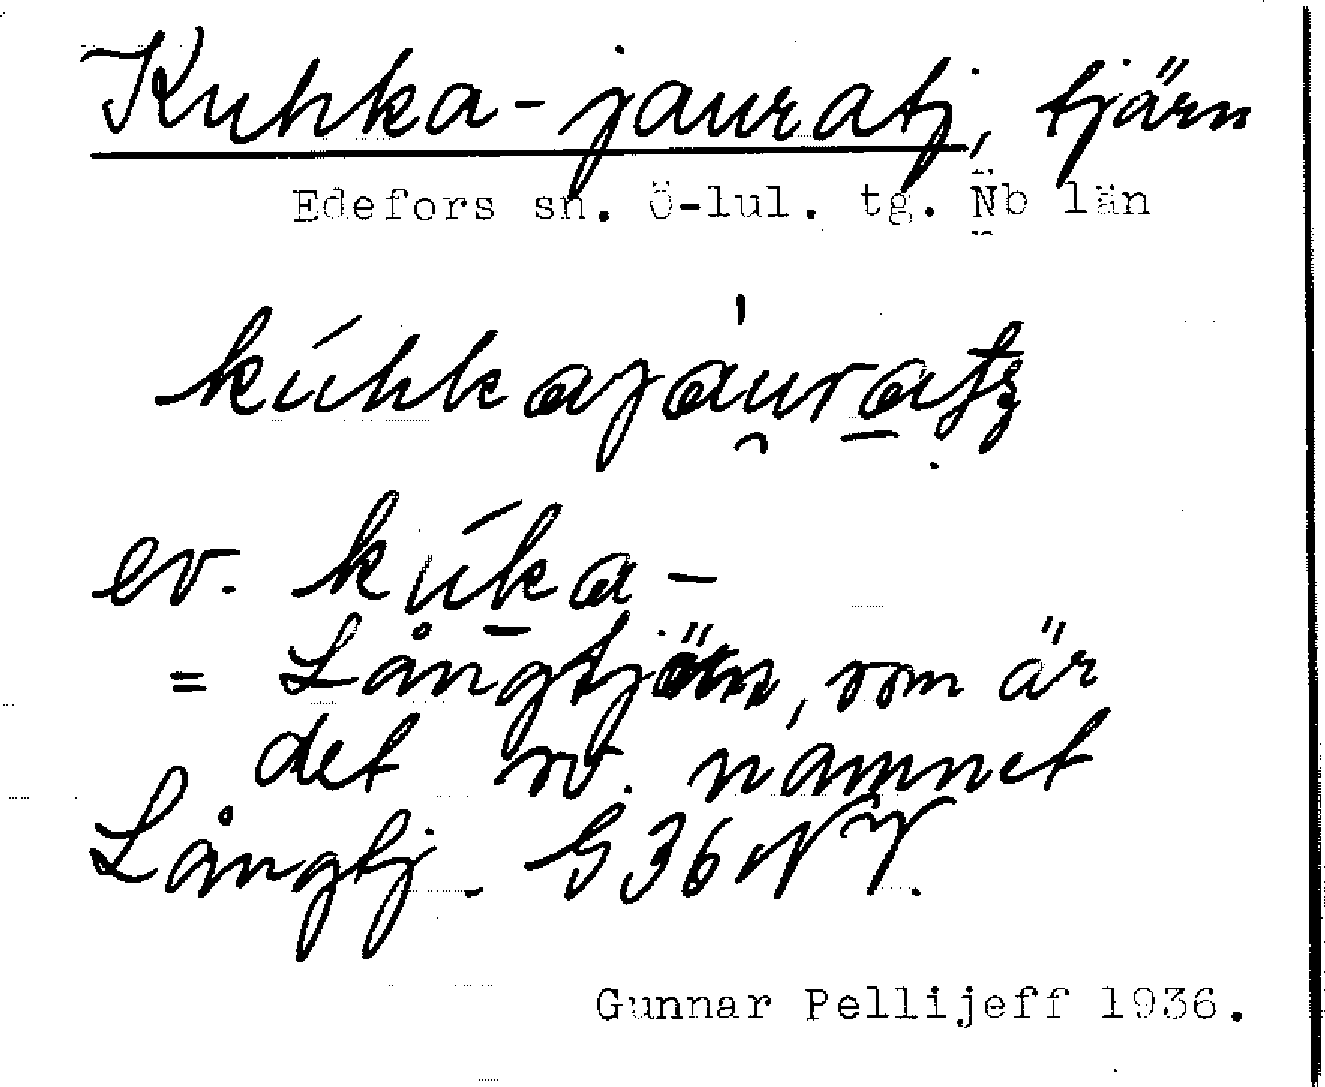 Kuhka-jauratj, tjärn
Edefors sn. Ö-lul. tg. Nb län
kúhkajáu̯ra̱tʒ
ev. kúḵa-
= Långtjärn, som är
det sv. namnet
Långtj. G 36 NV.
Gunnar Pellijeff 1936.